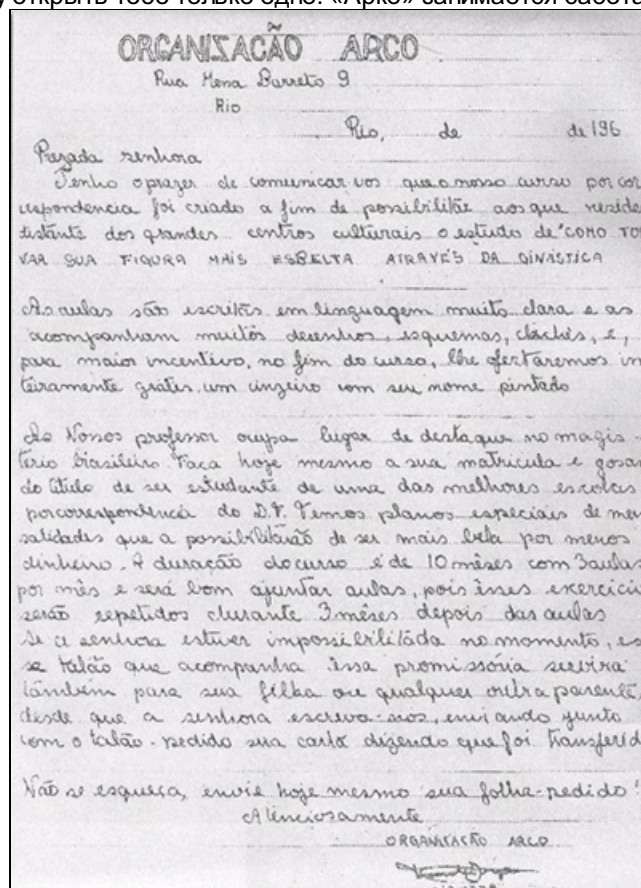 открыть тебе только одно: «Арко» занимается
ORGANIZACÃO ARCO
Rua Mena Barreto 9
Rio
Rio, de de 196
Prezada senhora
Tenho o prazer de comunicar-vos que o nosso curso por cor
respondencia foi criado a fim de possibilitar aos que reside
distante dos grandes centros culturais o estudo de "COMO TOR
VAR SUA FIGURA MAIS ESBELTA ATRAVÉS DA GINÁSTICA
As aulas são escritas em linguagem muito clara e as
acompanham muitos desenhos, esquemas, clichês, e,
para maior incentivo, no fim do curso, lhe ofertaremos in
teiramente grátis, um cinzeiro com seu nome pintado
As Nossos professor ocupa lugar de destaque no magis-
tério brasileiro. Faca hoje mesmo a sua matricula e gosar
do titulo de ser estudante de uma das melhores escolas
por correspondencia do D.F. Temos planos especiais de men
salidades que a possibilitarão de ser mais bela por menos
dinheiro. A duração do curso é de 10 mêses com 3 aulas
por mês e será bom ajuntar aulas, pois êsses exercicio
serão repetidos durante 3 mêses depois das aulas
Se a senhora estiver impossibilitada no momento, es
se talão que acompanha essa promissória servira
também para sua filha ou qualquer outra parenta
desde que a senhora escreva-nos, enviando junto
com o talão-pedido sua carta dizendo que foi transferid
Não se esqueça, envie hoje mesmo sua folha-pedido!
Atenciosamente
ORGANIZACÃO ARCO